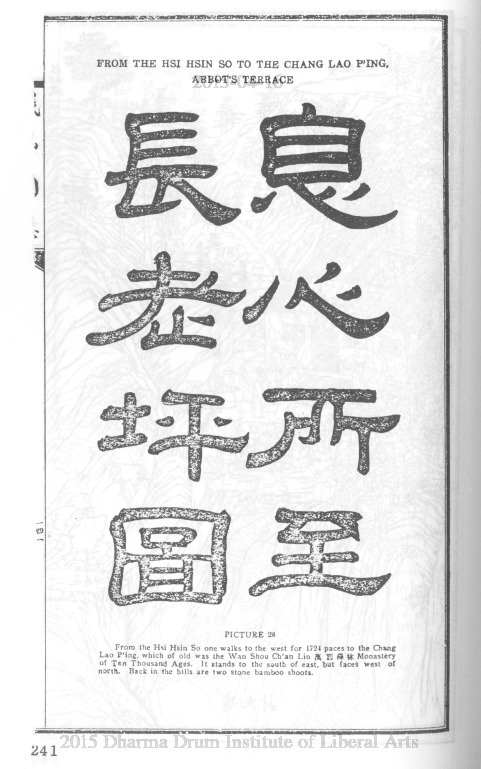 FROM THE HSI HSIN SO TO THE CHANG LAO P'ING,
ABBOT'S TERRACE
息心所至
長老坪圖
PICTURE 28
From the Hsi Hsin So one walks to the west for 1724 paces to the Chang
Lao P'ing, which of old was the Wan Shou Ch'an Lin 萬 禪林 Monastery
of Ten Thousand Ages. It stands to the south of east, but faces west of
north. Back in the hills are two stone bamboo shoots.
241
2015 Dharma Drum Institute of Liberal Arts